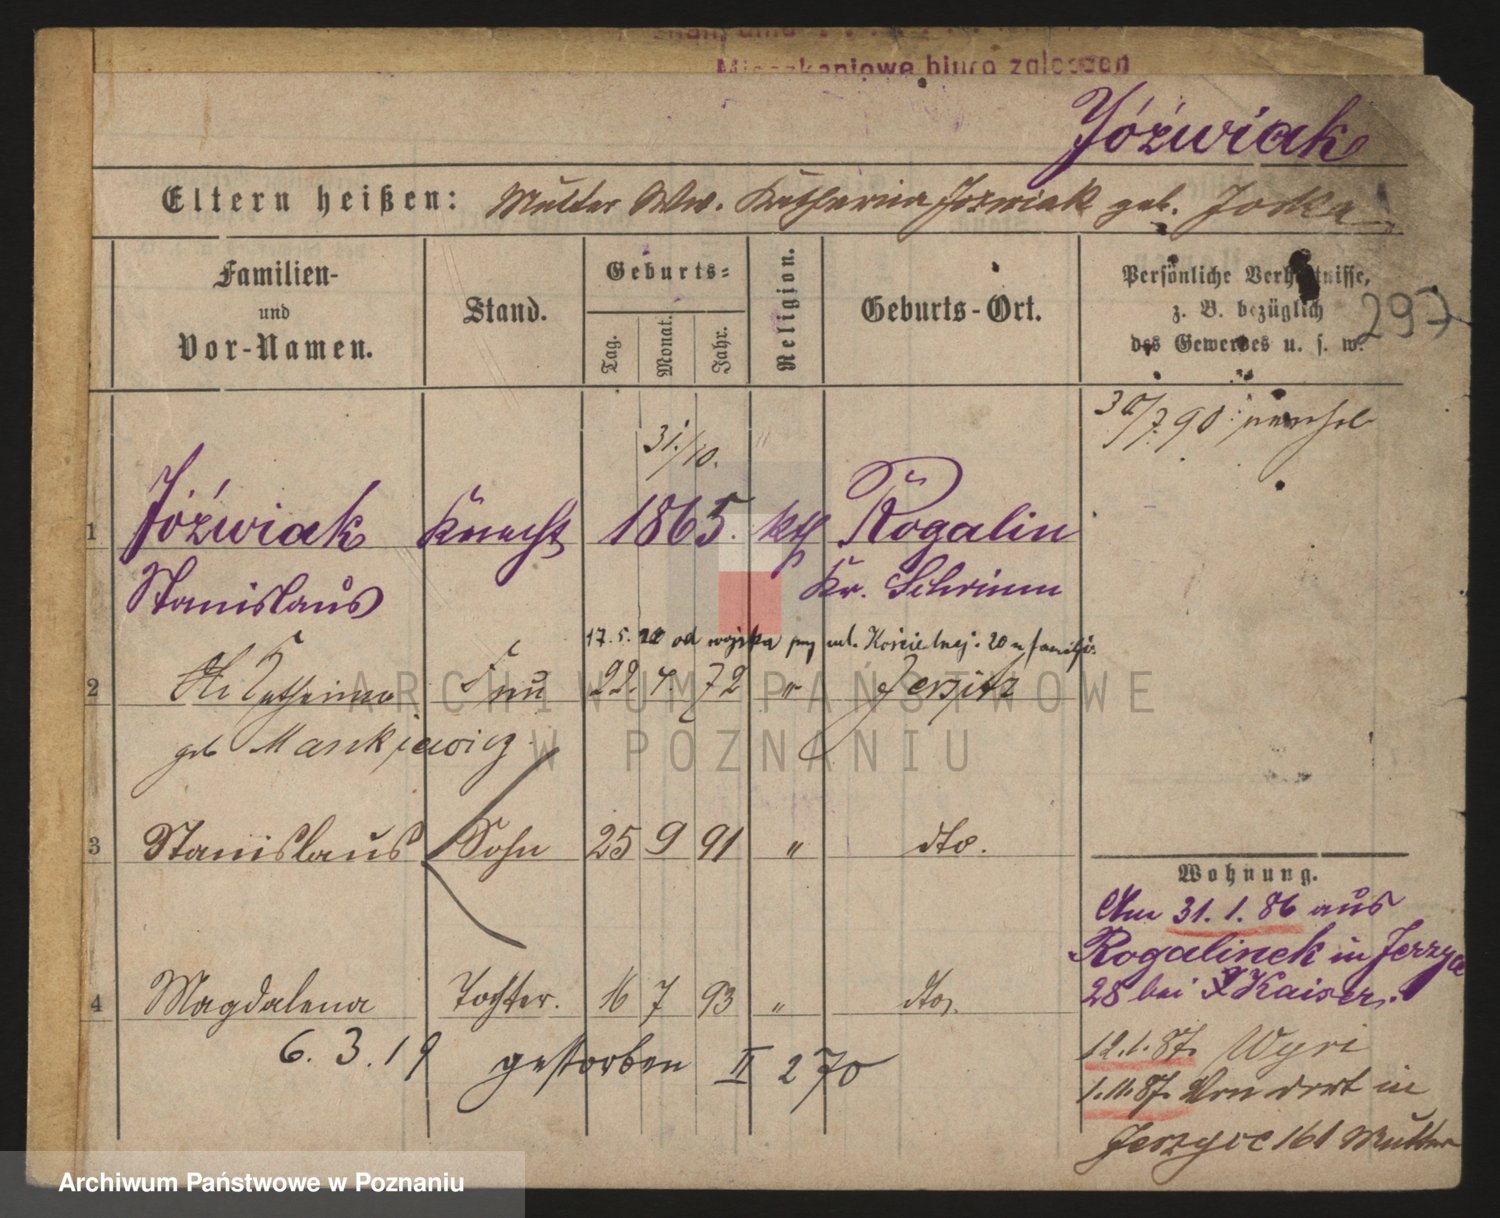 Mieszkaniowe biuro zgłoszeń
Jóźwiak
Eltern heißen: Mutter Ww. Katharina Jozwiak geb. Joska
Familien-
und
Vor-Namen.
Stand.
Geburts-
Tag.
Monat.
Jahr.
Religion.
Geburts-Ort.
Persönliche Verhältnisse,
z. B. bezüglich
des Gewerbes u. s. w.
297
30/7.90
31./10.
1 Jóźwiak Knecht 1865. kth Rogalin
Stanislaus Kr. Schrimm
17.5.22 od wojska przy ul. Kościelnej. 20
2 Katharina Frau 22. 4. 72 " Jerzitz
geb Mankiewicz
3 Stanislaus Sohn 25 9 91 " dto.
4 Magdalena Tochter. 16 7 93 " dto.
6. 3. 19 gestorben II 270
Wohnung.
Am 31. 1. 86 aus
Rogalinek in Jerzyce
28 bei Kaiser.
12.1.87. Wyri
1.11.87. von dort in
Jerzyce 161 Mutter
ARCHIWUM PAŃSTWOWE
W POZNANIU
Archiwum Państwowe w Poznaniu